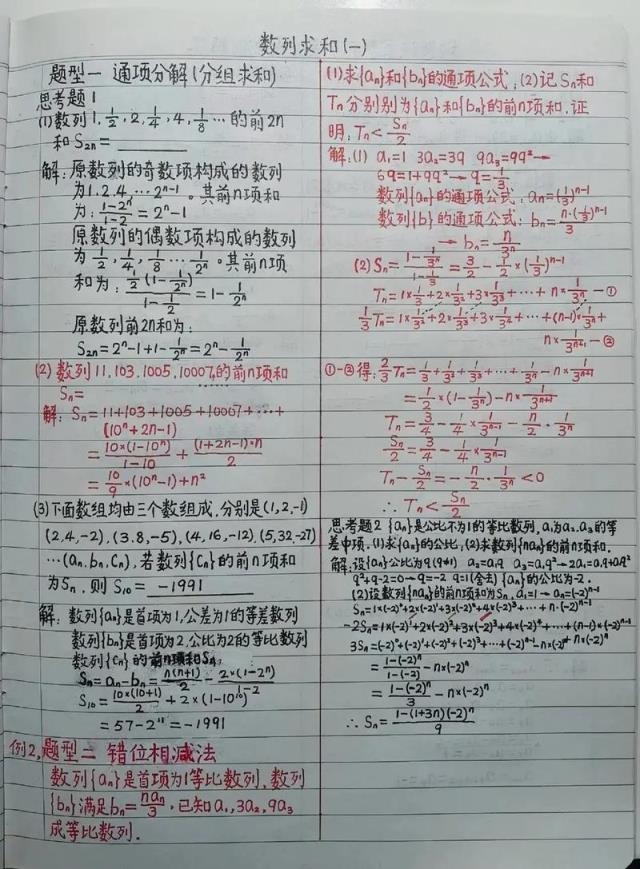 数列求和(一)
题型一 通项分解(分组求和)
思考题1
(1)数列1, 1/2, 2, 1/4, 4, 1/8 …的前2n
和S₂ₙ= ________
解:原数列的奇数项构成的数列
为1.2.4…2ⁿ⁻¹。其前n项和
为:(1-2ⁿ)/(1-2) = 2ⁿ-1
原数列的偶数项构成的数列
为 1/2, 1/4, 1/8 … 1/2ⁿ。其前n项
和为: 1/2(1-1/2ⁿ)/(1-1/2) = 1-1/2ⁿ
原数列前2n和为:
S₂ₙ=2ⁿ-1+1-1/2ⁿ=2ⁿ-1/2ⁿ
(2) 数列11.103.1005.10007,的前n项和
Sₙ=
解: Sₙ=11+103+1005+10007+…+
(10ⁿ+2n-1)
= 10×(1-10ⁿ)/(1-10) + (1+2n-1)·n/2
= 10/9 ×(10ⁿ-1)+n²
(3)下面数组均由三个数组成,分别是(1,2,-1)
(2,4,-2),(3.8,-5),(4,16,-12),(5,32-27)
…(aₙ.bₙ,Cₙ),若数列{Cₙ}的前n项和
为Sₙ,则 S₁₀= -1991
解: 数列{aₙ}是首项为1,公差为1的等差数列
数列{bₙ}是首项为2,公比为2的等比数列
数列{Cₙ}的前n项和Sₙ,
Sₙ=aₙ-bₙ= n(n+1)/2 - 2×(1-2ⁿ)/(1-2)
S₁₀= 10×(10+1)/2 +2×(1-2¹⁰)
=57-2¹¹=-1991
例2,题型二 错位相减法
数列{aₙ}是首项为1等比数列,数列
{bₙ}满足bₙ=naₙ/3,已知a₁,3a₂,9a₃
成等比数列.
(1)求{aₙ}和{bₙ}的通项公式;(2)记Sₙ和
Tₙ分别别为{aₙ}和{bₙ}的前n项和,证
明:Tₙ<Sₙ/2
解:(1) a₁=1 3a₂=3q 9a₃=9q²→
6q=1+9q²→q=1/3
数列{aₙ}的通项公式:aₙ=(1/3)ⁿ⁻¹
数列{b}的通项公式:bₙ=n·(1/3)ⁿ⁻¹/3
→bₙ=n/3ⁿ
(2)Sₙ=(1-1/3ⁿ)/(1-1/3)=3/2-1/2×(1/3)ⁿ⁻¹
Tₙ=1×1/3+2×1/3²+3×1/3³+…+n·1/3ⁿ—①
1/3Tₙ=1×1/3²+2×1/3³+3×1/3⁴+…+(n-1)×1/3ⁿ+
n×1/3ⁿ⁺¹—②
①-②得:2/3Tₙ=1/3+1/3²+1/3³+…+1/3ⁿ-n×1/3ⁿ⁺¹
=1/2×(1-1/3ⁿ)-n×1/3ⁿ⁺¹
Tₙ=3/4-1/4×1/3ⁿ⁻¹-n/2·1/3ⁿ
Sₙ/2=3/4-1/4×1/3ⁿ⁻¹
Tₙ-Sₙ/2=-n/2·1/3ⁿ<0
∴Tₙ<Sₙ/2
思考题2 {aₙ}是公比不为1的等比数列,a₁为a₂.a₃的等
差中项.(1)求{aₙ}的公比;(2)求数列{naₙ}的前n项和.
解:设{aₙ}公比为q(q≠1) a₂=a₁q a₃=a₁q²→2a₁=a₁q+a₁q²
q²+q-2=0→q=-2 q=1(舍去) {aₙ}的公比为-2.
(2)设数列{naₙ}的前n项和为Sₙ,a₁=1→aₙ=(-2)ⁿ⁻¹
Sₙ=1×(-2)⁰+2×(-2)¹+3×(-2)²+4×(-2)³+…+n·(-2)ⁿ⁻¹
-2Sₙ=1×(-2)¹+2×(-2)²+3×(-2)³+4×(-2)⁴+…+(n-1)×(-2)ⁿ⁻¹
+n×(-2)ⁿ
3Sₙ=(-2)⁰+(-2)¹+(-2)²+(-2)³+…+(-2)ⁿ⁻¹-n×(-2)ⁿ
=(1-(-2)ⁿ)/(1-(-2))-n×(-2)ⁿ
=(1-(-2)ⁿ)/3-n×(-2)ⁿ
∴Sₙ=(1-(1+3n)(-2)ⁿ)/9